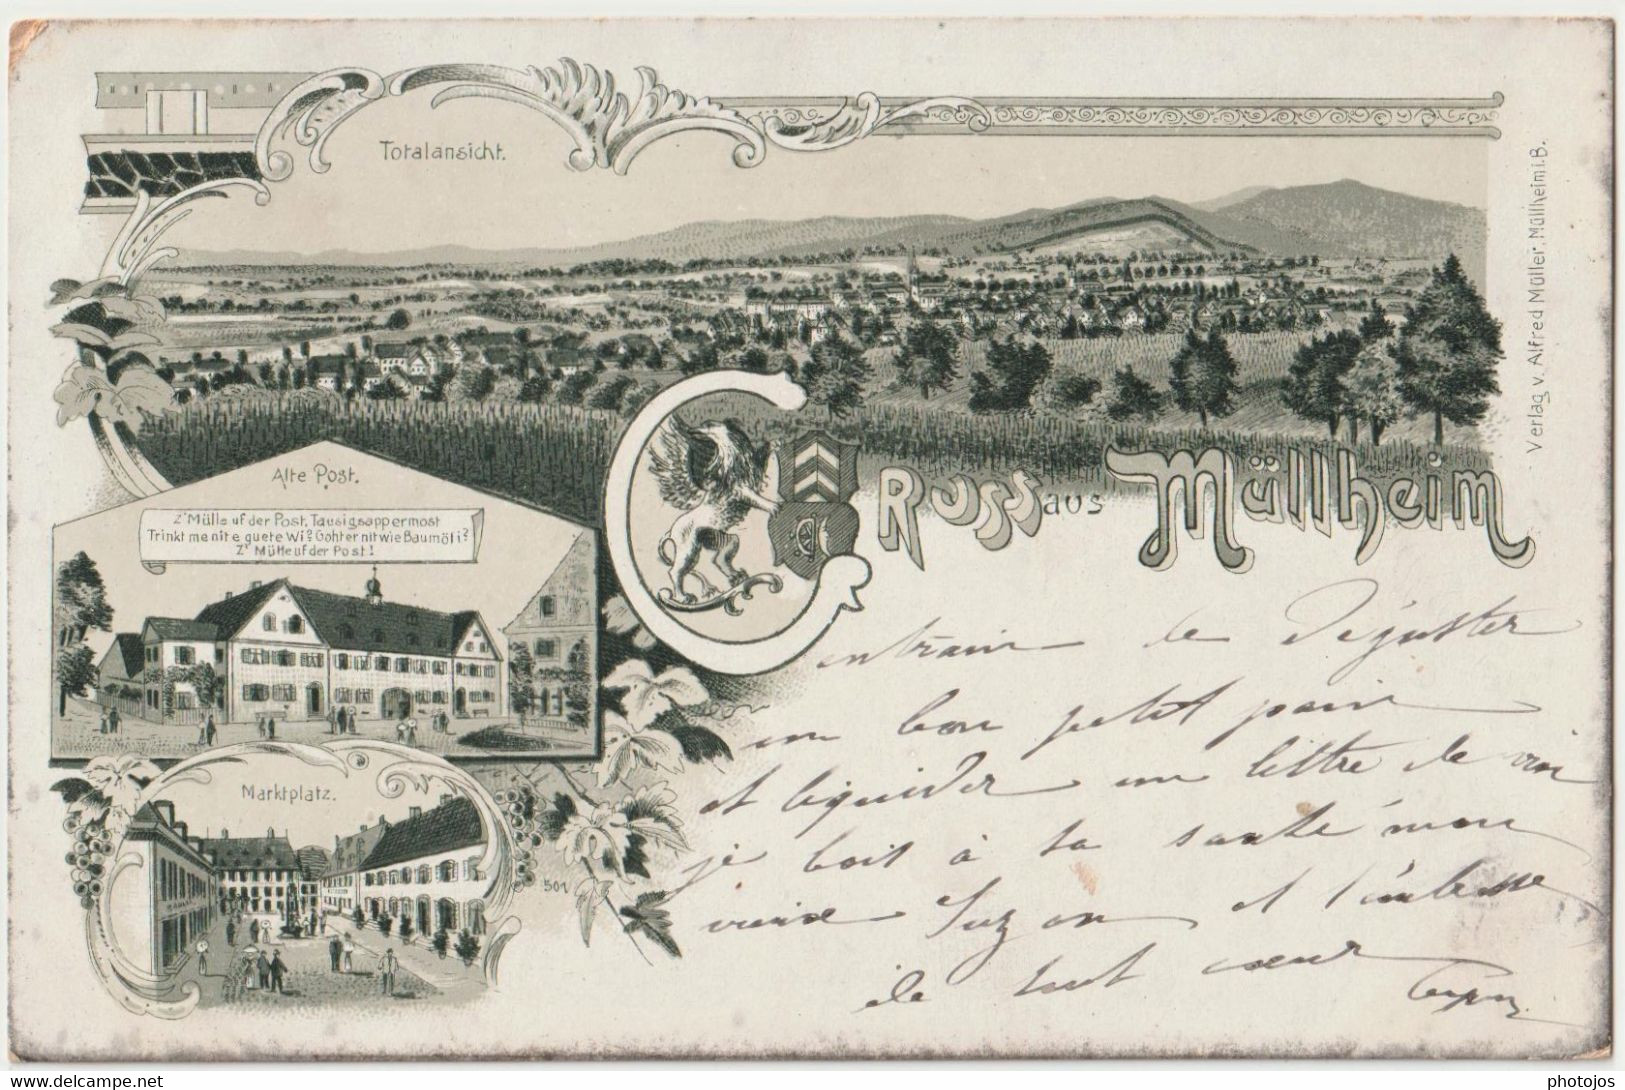 Totalansicht.
Verlag v. Alfred Müller, Müllheim i. B.
Alte Post.
Z'Mülle uf der Post, Tausigsappermost
Trinkt me nit e guete Wi? Goht er nit wie Baumöli?
Z' Mülle uf der Post!
GRUSS aus Müllheim
Marktplatz.
501
entrain de déguster
un bon petit pain
et liquider un littre de vin
je bois à ta santé mon
vieux Suzon et t'embrasse
de tout cœur
delcampe.net
photojos